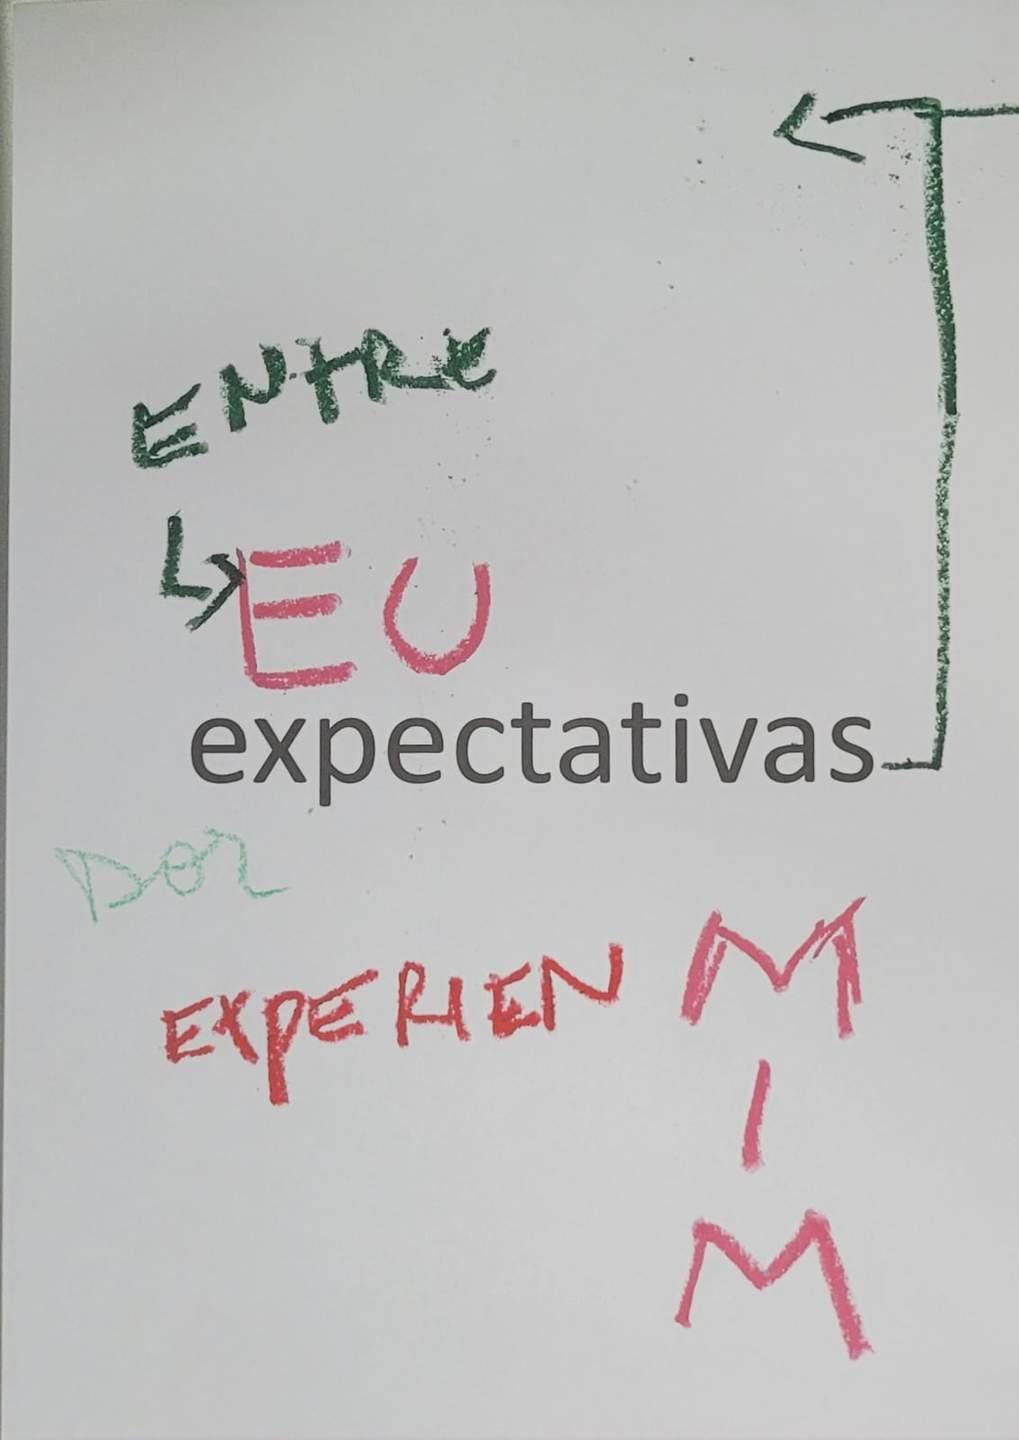 ENTRE
EU
expectativas
DOR
EXPERIEN
M
I
M